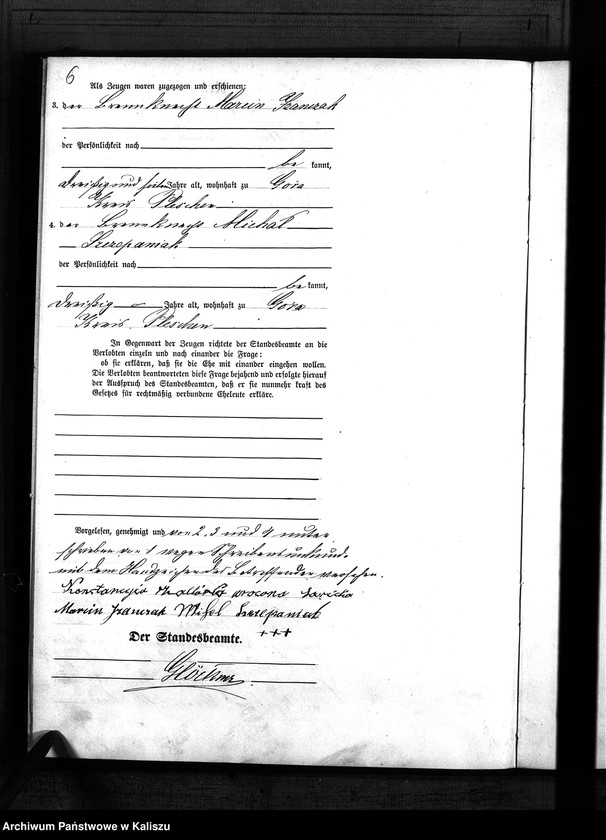 6
Als Zeugen waren zugezogen und erschienen:
3. der Brennknecht Marcin Franczak
der Persönlichkeit nach
be kannt,
Dreißig und Jahre alt, wohnhaft zu Gora
Kreis Pleschen
4. der Brennknecht Michal
Szczepaniak
der Persönlichkeit nach
be kannt,
Dreißig Jahre alt, wohnhaft zu Gora
Kreis Pleschen
In Gegenwart der Zeugen richtete der Standesbeamte an die
Verlobten einzeln und nach einander die Frage:
ob sie erklären, daß sie die Ehe mit einander eingehen wollen.
Die Verlobten beantworteten diese Frage bejahend und erfolgte hierauf
der Ausspruch des Standesbeamten, daß er sie nunmehr kraft des
Gesetzes für rechtmäßig verbundene Eheleute erkläre.
Vorgelesen, genehmigt und von 2, 3 und 4 unter
schrieben von 1 wegen Schreibensunkunde
mit dem Handzeichen des Betreffenden versehen.
Konstancyja
Marcin Franczak Michel Szczepaniak
+++
Der Standesbeamte.
Glöckner
Archiwum Państwowe w Kaliszu